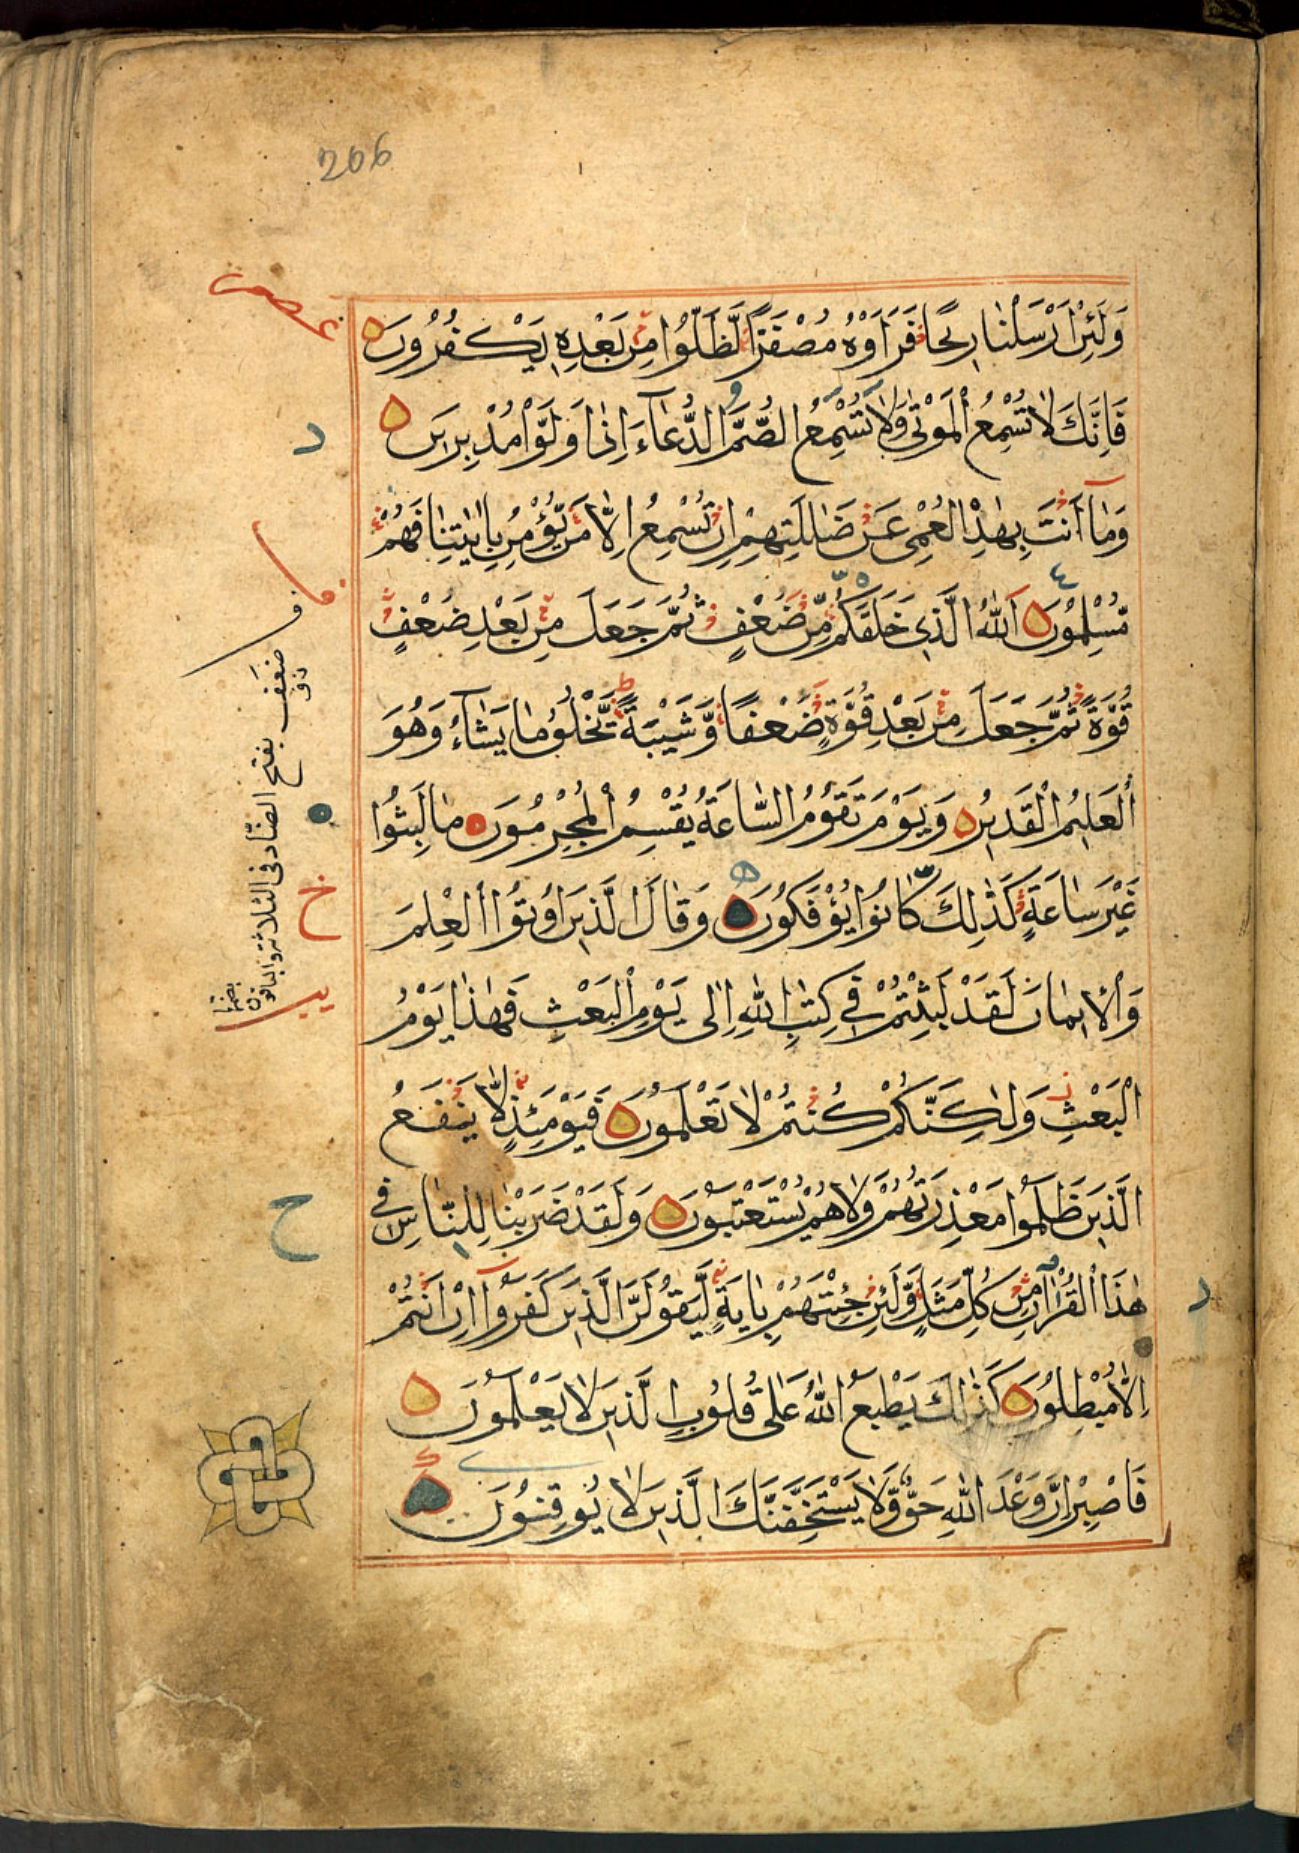 206
وَلَئِنْ اَرْسَلْنَا رِيحًا فَرَاَوْهُ مُصْفَرًّا لَّظَلُّوا مِنْ بَعْدِهٖ يَكْفُرُونَ
فَاِنَّكَ لَا تُسْمِعُ الْمَوْتٰى وَلَا تُسْمِعُ الصُّمَّ الدُّعَآءَ اِذَا وَلَّوْا مُدْبِرِيْنَ
وَمَآ اَنْتَ بِهٰدِ الْعُمْىِ عَنْ ضَلٰلَتِهِمْ اِنْ تُسْمِعُ اِلَّا مَنْ يُّؤْمِنُ بِاٰيٰتِنَا فَهُمْ
مُّسْلِمُوْنَ اَللّٰهُ الَّذِى خَلَقَكُمْ مِّنْ ضُعْفٍ ثُمَّ جَعَلَ مِنْ بَعْدِ ضُعْفٍ
قُوَّةً ثُمَّ جَعَلَ مِنْ بَعْدِ قُوَّةٍ ضُعْفًا وَّشَيْبَةً يَّخْلُقُ مَا يَشَآءُ وَهُوَ
الْعَلِيْمُ الْقَدِيْرُ وَيَوْمَ تَقُوْمُ السَّاعَةُ يُقْسِمُ الْمُجْرِمُوْنَ مَا لَبِثُوْا
غَيْرَ سَاعَةٍ كَذٰلِكَ كَانُوْا يُؤْفَكُوْنَ وَقَالَ الَّذِيْنَ اُوْتُوا الْعِلْمَ
وَالْاِيْمَانَ لَقَدْ لَبِثْتُمْ فِى كِتٰبِ اللّٰهِ اِلٰى يَوْمِ الْبَعْثِ فَهٰذَا يَوْمُ
الْبَعْثِ وَلٰكِنَّكُمْ كُنْتُمْ لَا تَعْلَمُوْنَ فَيَوْمَئِذٍ لَّا يَنْفَعُ
الَّذِيْنَ ظَلَمُوْا مَعْذِرَتُهُمْ وَلَا هُمْ يُسْتَعْتَبُوْنَ وَلَقَدْ ضَرَبْنَا لِلنَّاسِ فِى
هٰذَا الْقُرْاٰنِ مِنْ كُلِّ مَثَلٍ وَّلَئِنْ جِئْتَهُمْ بِاٰيَةٍ لَّيَقُوْلَنَّ الَّذِيْنَ كَفَرُوْآ اِنْ اَنْتُمْ
اِلَّا مُبْطِلُوْنَ كَذٰلِكَ يَطْبَعُ اللّٰهُ عَلٰى قُلُوْبِ الَّذِيْنَ لَا يَعْلَمُوْنَ
فَاصْبِرْ اِنَّ وَعْدَ اللّٰهِ حَقٌّ وَّلَا يَسْتَخِفَّنَّكَ الَّذِيْنَ لَا يُوْقِنُوْنَ
ضعف بفتح الضاد فى الثلاثة والباقون بضمها